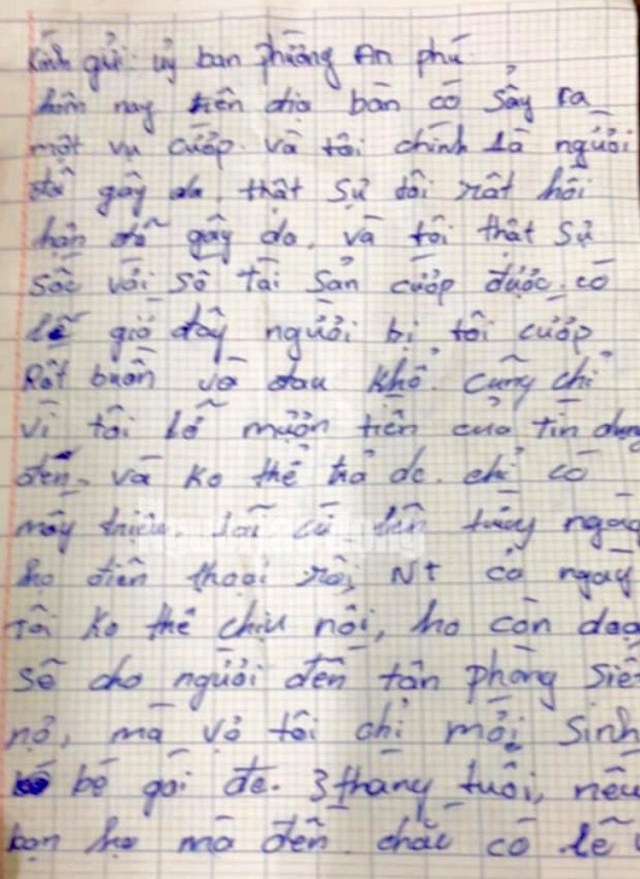 Kính gửi uỷ ban phường An phú
hôm nay trên địa bàn có sảy ra
một vụ cướp. và tôi chính là người
đã gây da. thật sự tôi rất hối
hận đã gây do. và tôi thật sự
sốc với số tài sản cướp được. có
lẽ giờ đây người bị tôi cướp
Rất buồn và đau khổ. cũng chỉ
vì tôi lỡ mượn tiền của tín dụng
đen. và ko thể trả dc. chỉ có
mấy triệu. lãi cứ lên từng ngày
họ điện thoại rồi, NT cả ngày
tôi ko thể chịu nỗi, họ còn doạ
sẽ cho người đến tận phòng siết
nợ, mà vợ tôi chỉ mới sinh
bé gái đc. 3 tháng tuổi, nếu
bọn họ mà đến. chắc có lẽ